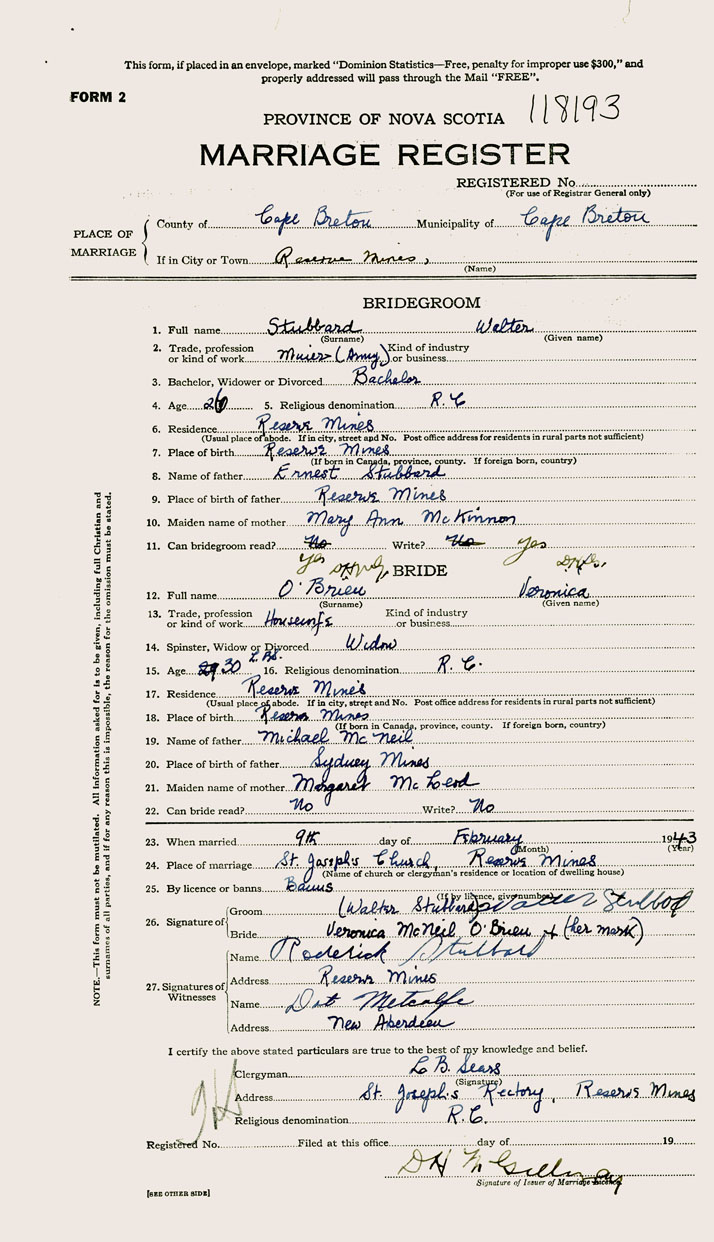 This form, if placed in an envelope, marked "Dominion Statistics—Free, penalty for improper use $300," and
properly addressed will pass through the Mail "FREE".
FORM 2
118193
PROVINCE OF NOVA SCOTIA
MARRIAGE REGISTER
REGISTERED No.
(For use of Registrar General only)
PLACE OF MARRIAGE
County of Cape Breton Municipality of Cape Breton
If in City or Town Reserve Mines,
(Name)
BRIDEGROOM
1. Full name Stubbard Walter
(Surname) (Given name)
2. Trade, profession or kind of work Miner (Army) Kind of industry or business
3. Bachelor, Widower or Divorced Bachelor
4. Age 26 5. Religious denomination R. C
6. Residence Reserve Mines
(Usual place of abode. If in city, street and No. Post office address for residents in rural parts not sufficient)
7. Place of birth Reserve Mines
(If born in Canada, province, county. If foreign born, country)
8. Name of father Ernest Stubbard
9. Place of birth of father Reserve Mines
10. Maiden name of mother Mary Ann McKinnon
11. Can bridegroom read? No Write? No Yes
Yes
BRIDE
12. Full name O'Brien Veronica
(Surname) (Given name)
13. Trade, profession or kind of work Housewife Kind of industry or business
14. Spinster, Widow or Divorced Widow
L.B.S.
15. Age 29 30 16. Religious denomination R. C.
17. Residence Reserve Mines
(Usual place of abode. If in city, street and No. Post office address for residents in rural parts not sufficient)
18. Place of birth Reserve Mines
(If born in Canada, province, county. If foreign born, country)
19. Name of father Michael McNeil
20. Place of birth of father Sydney Mines
21. Maiden name of mother Margaret McLeod
22. Can bride read? No Write? No
23. When married 9th day of February 1943
(Month) (Year)
24. Place of marriage St. Joseph's Church, Reserve Mines
(Name of church or clergyman's residence or location of dwelling house)
25. By licence or banns Banns
(If by licence, give number)
26. Signature of
Groom (Walter Stubbard) Walter Stubbard
Bride Veronica McNeil O'Brien + (her mark)
27. Signatures of Witnesses
Name Roderick Stubbard
Address Reserve Mines
Name Metcalfe
Address New Aberdeen
I certify the above stated particulars are true to the best of my knowledge and belief.
Clergyman L. B. Sears
(Signature)
Address St. Joseph's Rectory, Reserve Mines
Religious denomination R. C.
Registered No. Filed at this office day of 19
Signature of Issuer of Marriage Licence
[SEE OTHER SIDE]
NOTE.—This form must not be mutilated. All information asked for is to be given, including full Christian and
surnames of all parties, and if for any reason this is impossible, the reason for the omission must be stated.